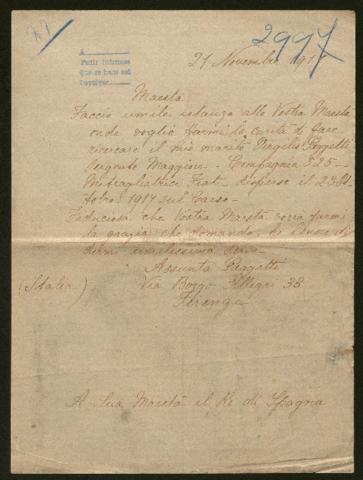 2997
A
Pedir informes
que se hace así
21 Novembre 191
Maestà
Faccio umile istanza alla Vostra Maestà
onde voglia farmi la carità di fare
ricercare il mio marito Poggetti
Sergente Maggiore - Compagnia 825 -
Mitragliatrice Fiat - disperso il 23
1917 sul Carso -
Fiduciosa che Vostra Maestà vorrà farmi
la grazia che domando,
umilissima serva
Assunta Poggetti
(Italia) Via Borgo Allegri 33
Firenze
A Sua Maestà il Re di Spagna